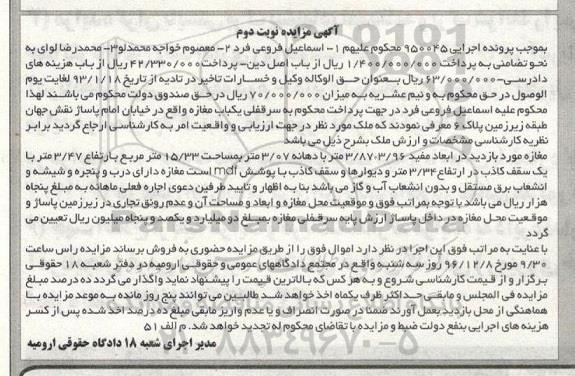 آگهی مزایده نوبت دوم
بموجب پرونده اجرایی ۹۵۰۰۴۵ محکوم علیهم ۱- اسماعیل فروعی فرد ۲- معصوم خواجه محمدلو ۳- محمدرضا لوای به
نحو تضامنی به پرداخت ۱/۴۰۰/۰۰۰/۰۰۰ ریال از باب اصل دین- پرداخت ۴۲/۳۳۰/۰۰۰ ریال از باب هزینه های
دادرسی- ۶۳/۰۰۰/۰۰۰ ریال بعنوان حق الوکاله وکیل و خسارات تاخیر در تادیه از تاریخ ۹۳/۱/۱۸ لغایت یوم
الوصول در حق محکوم به و نیم عشریه به میزان ۷۰/۰۰۰/۰۰۰ ریال در حق صندوق دولت محکوم می باشند لهذا
محکوم علیه اسماعیل فروعی فرد در جهت پرداخت محکوم به سرقفلی یکباب مغازه واقع در خیابان امام پاساژ نقش جهان
طبقه زیرزمین پلاک ۶ معرفی نمودند که ملک مورد نظر در جهت ارزیابی و واقعیت امر به کارشناسی ارجاع گردید برابر
نظریه کارشناسی مشخصات و ارزش ملک بشرح ذیل می باشد
مغازه مورد بازدید در ابعاد مفید ۳/۸۷،۳/۹۶ با دهانه ۳/۰۷ متر بمساحت ۱۵/۳۳ متر مربع بارتفاع ۳/۴۷ متر با
یک سقف کاذب در ارتفاع ۳/۳۴ متر و دیوارها و سقف کاذب با پوشش mdf است مغازه دارای درب و پنجره و شیشه و
انشعاب برق مستقل و بدون انشعاب آب و گاز می باشد بنا به اظهار و تایید طرفین دعوی اجاره فعلی ماهانه به مبلغ پنجاه
هزار ریال می باشد با توجه بمراتب فوق و موقعیت محل مغازه و ابعاد و مساحت آن و عدم رونق تجاری در زیرزمین پاساژ و
موقعیت محل مغازه در داخل پاساژ ارزش پایه سرقفلی مغازه بمبلغ دو میلیارد و یکصد و پنجاه میلیون ریال تعیین می
گردد
با عنایت به مراتب فوق این اجرا در نظر دارد اموال فوق را از طریق مزایده حضوری به فروش برساند مزایده راس ساعت
۹/۳۰ مورخ ۹۶/۱۲/۸ روز سه شنبه واقع در مجتمع دادگاههای عمومی و حقوقی ارومیه در دفتر شعبه ۱۸ حقوقی
برگزار و از قیمت کارشناسی شروع و به هر کس که بالاترین قیمت را پیشنهاد نماید واگذار می گردد ده درصد مبلغ
مزایده فی المجلس و مابقی حداکثر ظرف یکماه اخذ خواهد شد طالبین می توانند پنج روز مانده به موعد مزایده با
هماهنگی از محل بازدید بعمل آورند ضمنا در صورت انصراف و یا عدم واریز مابقی مبلغ ده درصد اخذ شده پس از کسر
هزینه های اجرایی بنفع دولت ضبط و مزایده با تقاضای محکوم له تجدید خواهد شد. م الف ۵۱
مدیر اجرای شعبه ۱۸ دادگاه حقوقی ارومیه